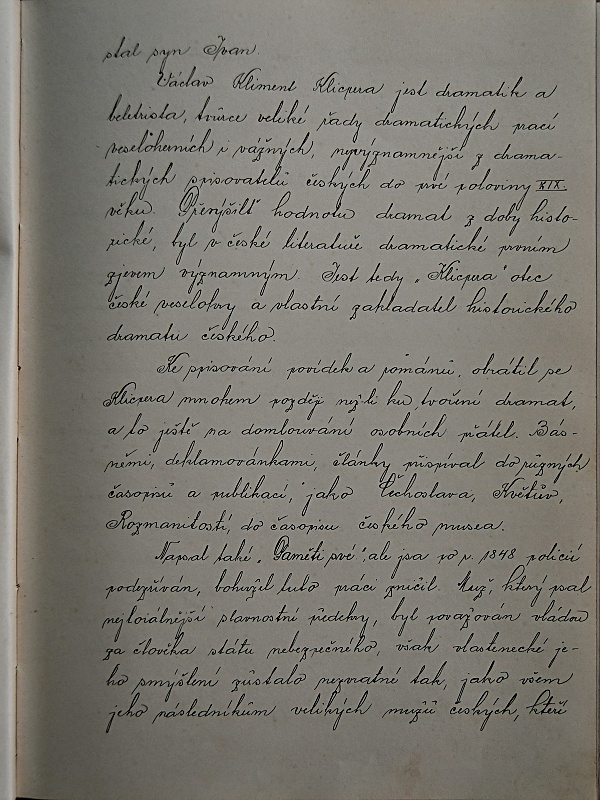 stal syn Ivan.
Václav Kliment Klicpera jest dramatik a
beletrista, tvůrce veliké řady dramatických prací
veseloherních i vážných, nejvýznamnější z drama-
tických spisovatelů českých do prvé poloviny XIX.
věku. Převýšil hodnotu dramat z doby histo-
rické, byl v české literatuře dramatické prvním
zjevem významným. Jest tedy „Klicpera" otec
české veselohry a vlastní zakladatel historického
dramatu českého.
Ke spisování povídek a románů, obrátil se
Klicpera mnohem později nežli ku tvoření dramat,
a to ještě na domlouvání osobních přátel. Bás-
němi, deklamovánkami, články přispíval do různých
časopisů a publikací, jako Čechoslava, Květův,
Rozmanitostí, do časopisu českého musea.
Napsal také „Paměti své", ale jsa po r. 1848 policií
podezříván, bohužel tuto práci zničil. Muž, který psal
nejloiálnější slavnostní předehry, byl považován vládou
za člověka státu nebezpečného, však vlastenecké je-
ho smýšlení zůstalo nezvratné tak, jako všem
jeho následníkům velikých mužů českých, kteří